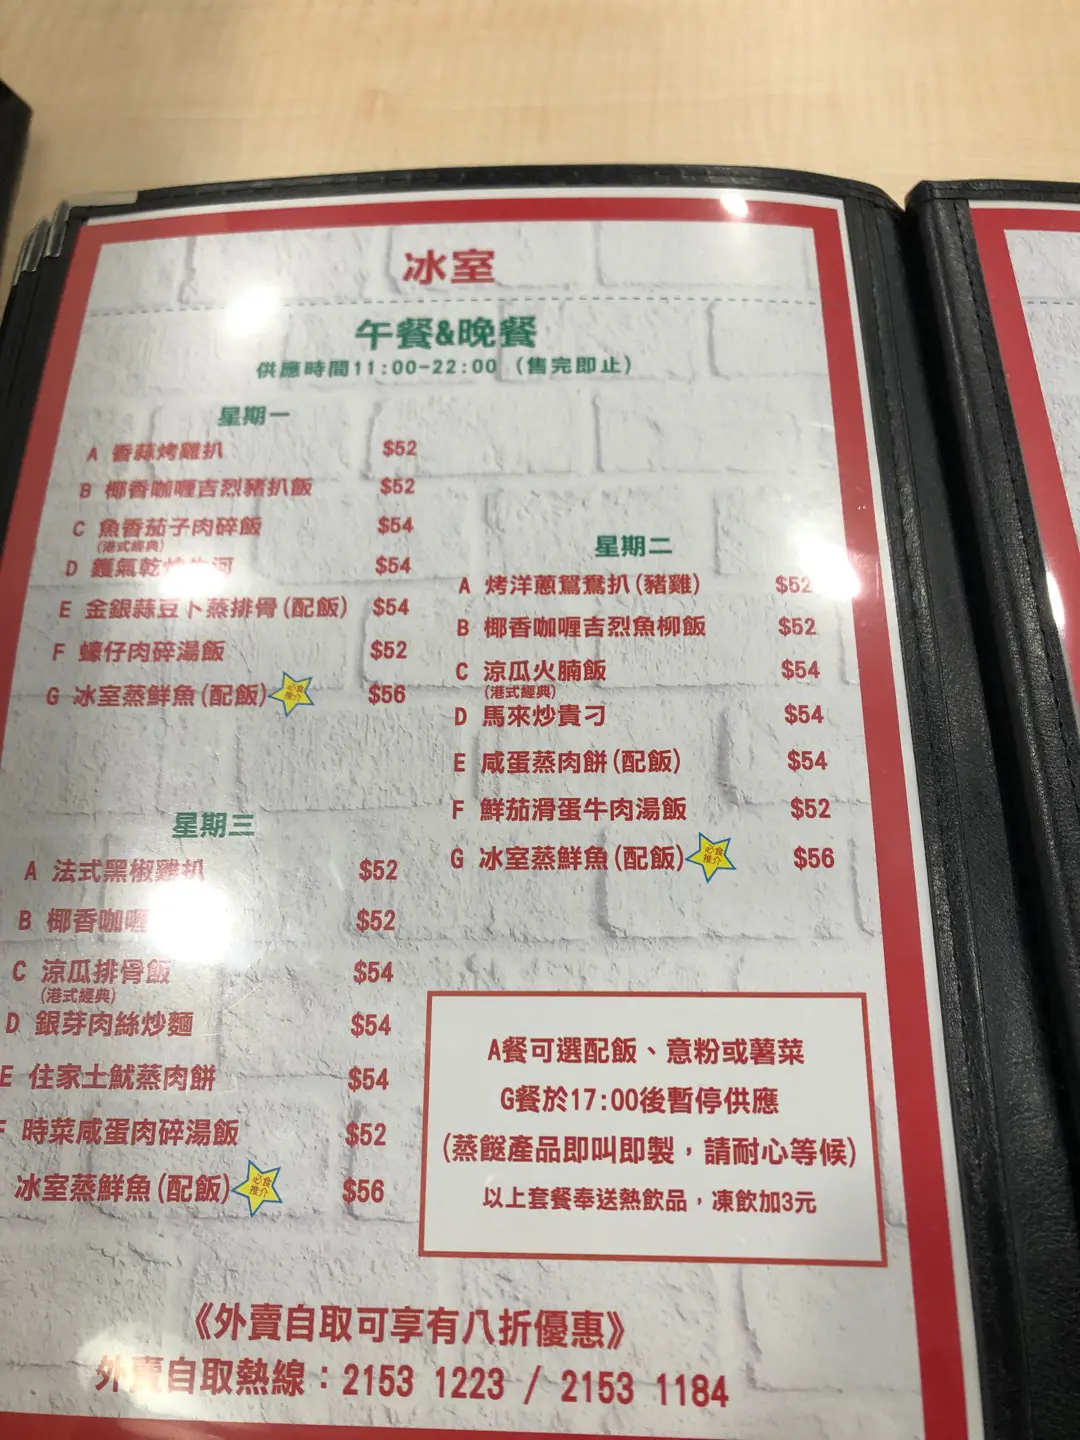 冰室
午餐&晚餐
供應時間11:00-22:00 (售完即止)
星期一
A 香蒜烤雞扒 $52
B 椰香咖喱吉烈豬扒飯 $52
C 魚香茄子肉碎飯 $54
(港式經典)
D 鑊氣乾炒牛河 $54
E 金銀蒜豆卜蒸排骨(配飯) $54
F 蠔仔肉碎湯飯 $52
G 冰室蒸鮮魚(配飯) 必食推介 $56
星期二
A 烤洋蔥鴛鴦扒(豬雞) $52
B 椰香咖喱吉烈魚柳飯 $52
C 涼瓜火腩飯 $54
(港式經典)
D 馬來炒貴刁 $54
E 咸蛋蒸肉餅(配飯) $54
F 鮮茄滑蛋牛肉湯飯 $52
G 冰室蒸鮮魚(配飯) 必食推介 $56
星期三
A 法式黑椒雞扒 $52
B 椰香咖喱 $52
C 涼瓜排骨飯 $54
(港式經典)
D 銀芽肉絲炒麵 $54
E 住家土魷蒸肉餅 $54
F 時菜咸蛋肉碎湯飯 $52
冰室蒸鮮魚(配飯) 必食推介 $56
A餐可選配飯、意粉或薯菜
G餐於17:00後暫停供應
(蒸餸產品即叫即製，請耐心等候)
以上套餐奉送熱飲品，凍飲加3元
《外賣自取可享有八折優惠》
外賣自取熱線：2153 1223 / 2153 1184